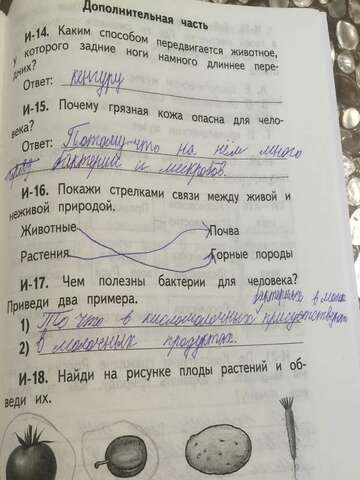 Дополнительная часть
И-14. Каким способом передвигается животное,
у которого задние ноги намного длиннее пере-
дних?
Ответ: кенгуру
И-15. Почему грязная кожа опасна для чело-
века?
Ответ: Потому-что на нём много
бактерий и микробов.
И-16. Покажи стрелками связи между живой и
неживой природой.
Животные Почва
Растения Горные породы
И-17. Чем полезны бактерии для человека?
Приведи два примера.
1) То что в кисломолочных
2) в молочных продуктах.
И-18. Найди на рисунке плоды растений и об-
веди их.